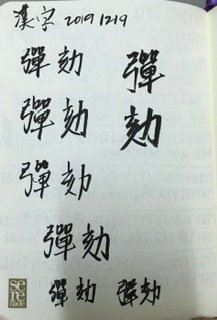 漢字 20191219
彈劾
彈劾
彈劾
彈劾
彈劾 彈劾
彈
劾
se
re
made